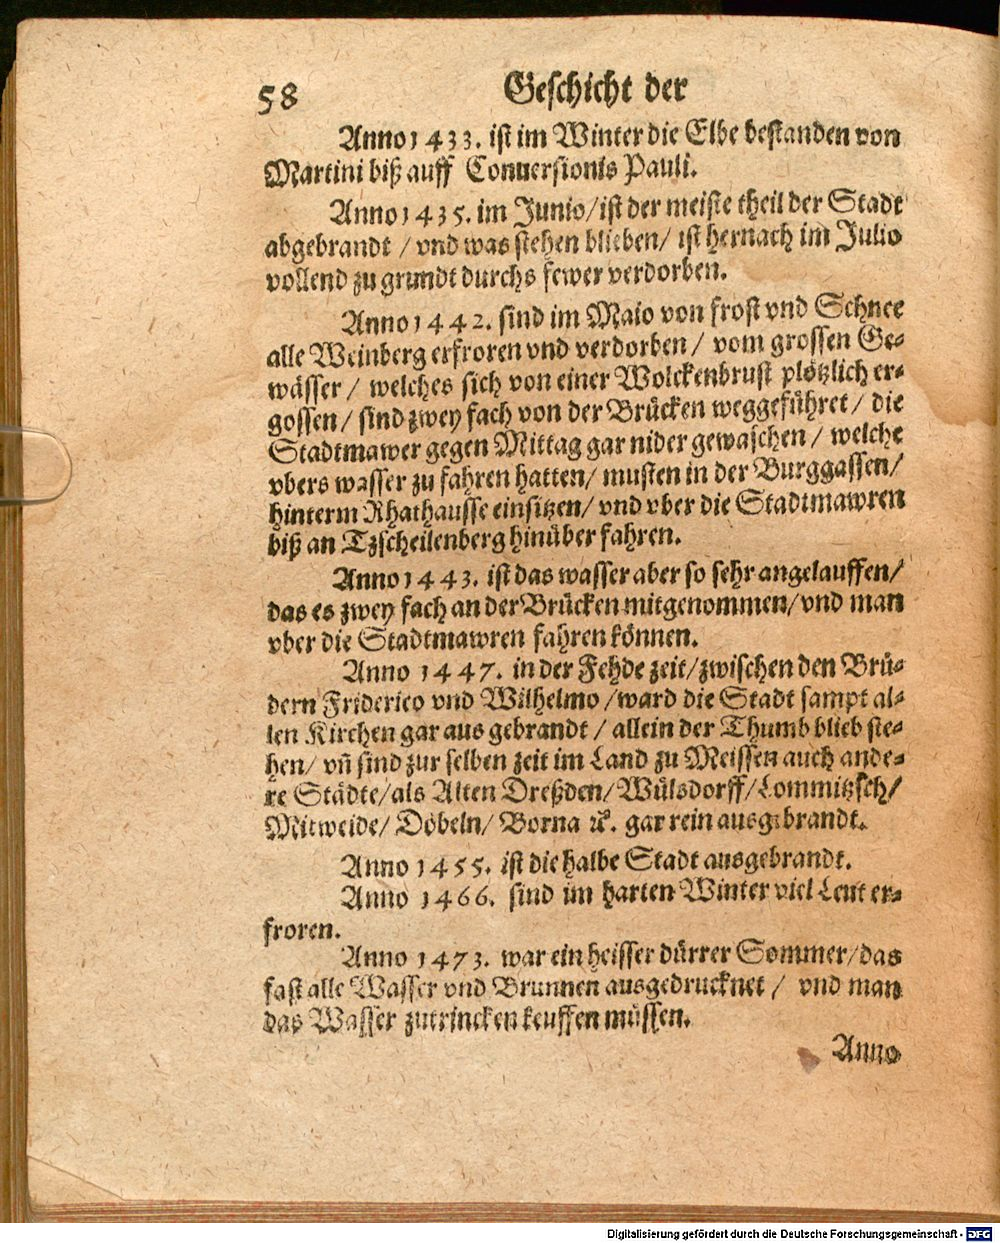 58 Geschicht der
Anno 1433. ist im Winter die Elbe bestanden von
Martini biß auff Conuersionis Pauli.
Anno 1435. im Junio/ ist der meiste theil der Stadt
abgebrandt / vnd was stehen blieben/ ist hernach im Julio
vollend zu grundt durchs fewer verdorben.
Anno 1442. sind im Maio von frost vnd Schnee
alle Weinberg erfroren vnd verdorben / vom grossen Ge-
wässer / welches sich von einer Wolckenbrust plötzlich er-
gossen / sind zwey fach von der Brücken weggeführet / die
Stadtmawer gegen Mittag gar nider gewaschen / welche
vbers wasser zu fahren hatten/ musten in der Burggassen/
hinterm Rhathausse einsitzen/ vnd vber die Stadtmawren
biß an Tzscheilenberg hinüber fahren.
Anno 1443. ist das wasser aber so sehr angelauffen/
das es zwey fach an der Brücken mitgenommen/ vnd man
vber die Stadtmawren fahren können.
Anno 1447. in der Fehde zeit/ zwischen den Brü-
dern Friderico vnd Wilhelmo / ward die Stadt sampt al-
len Kirchen gar aus gebrandt / allein der Thumb blieb ste-
hen/ vn̄ sind zur selben zeit im Land zu Meissen auch ande-
re Städte/ als Alten Dreßden/ Wülsdorff/ Lommitzsch/
Mitweide/ Döbeln/ Borna ꝛc. gar rein ausgebrandt.
Anno 1455. ist die halbe Stadt ausgebrandt.
Anno 1466. sind im harten Winter viel Leut er-
froren.
Anno 1473. war ein heisser dürrer Sommer/ das
fast alle Wasser vnd Brunnen ausgedrucknet / vnd man
das Wasser zutrincken keuffen müssen.
Anno
Digitalisierung gefördert durch die Deutsche Forschungsgemeinschaft - DFG